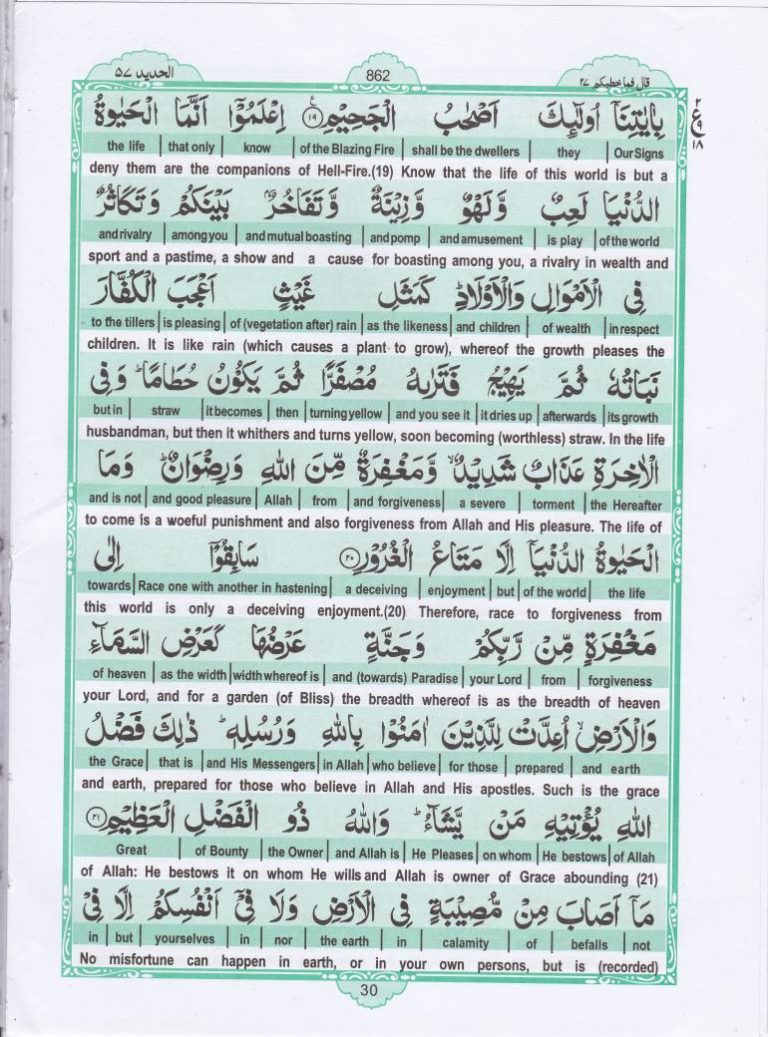 الحديد ٥٧ 862 قال فما خطبكم ٢٧
بِاٰيٰتِنَاۤ اُولٰٓئِكَ اَصْحٰبُ الْجَحِيْمِ ۧ ١٩ اِعْلَمُوْۤا اَنَّمَا الْحَيٰوةُ
٢ ع ٩ ١٨
the life | that only | know | of the Blazing Fire | shall be the dwellers | they | Our Signs
deny them are the companions of Hell-Fire.(19) Know that the life of this world is but a
الدُّنْيَا لَعِبٌ وَّلَهْوٌ وَّزِيْنَةٌ وَّتَفَاخُرٌۢ بَيْنَكُمْ وَتَكَاثُرٌ
and rivalry | among you | and mutual boasting | and pomp | and amusement | is play | of the world
sport and a pastime, a show and a cause for boasting among you, a rivalry in wealth and
فِى الْاَمْوَالِ وَالْاَوْلَادِ ؕ كَمَثَلِ غَيْثٍ اَعْجَبَ الْكُفَّارَ
to the tillers | is pleasing | of (vegetation after) rain | as the likeness | and children | of wealth | in respect
children. It is like rain (which causes a plant to grow), whereof the growth pleases the
نَبَاتُهٗ ثُمَّ يَهِيْجُ فَتَرٰىهُ مُصْفَرًّا ثُمَّ يَكُوْنُ حُطَامًا ؕ وَفِى
but in | straw | it becomes | then | turning yellow | and you see it | it dries up | afterwards | its growth
husbandman, but then it whithers and turns yellow, soon becoming (worthless) straw. In the life
الْاٰخِرَةِ عَذَابٌ شَدِيْدٌ ۙ وَّمَغْفِرَةٌ مِّنَ اللّٰهِ وَرِضْوَانٌ ؕ وَمَا
and is not | and good pleasure | Allah | from | and forgiveness | a severe | torment | the Hereafter
to come is a woeful punishment and also forgiveness from Allah and His pleasure. The life of
الْحَيٰوةُ الدُّنْيَاۤ اِلَّا مَتَاعُ الْغُرُوْرِ ٢٠ سَابِقُوْۤا اِلٰى
towards | Race one with another in hastening | a deceiving | enjoyment | but | of the world | the life
this world is only a deceiving enjoyment.(20) Therefore, race to forgiveness from
مَغْفِرَةٍ مِّنْ رَّبِّكُمْ وَجَنَّةٍ عَرْضُهَا كَعَرْضِ السَّمَآءِ
of heaven | as the width | width whereof is | and (towards) Paradise | your Lord | from | forgiveness
your Lord, and for a garden (of Bliss) the breadth whereof is as the breadth of heaven
وَالْاَرْضِ ۙ اُعِدَّتْ لِلَّذِيْنَ اٰمَنُوْا بِاللّٰهِ وَرُسُلِهٖ ؕ ذٰلِكَ فَضْلُ
the Grace | that is | and His Messengers | in Allah | who believe | for those | prepared | and earth
and earth, prepared for those who believe in Allah and His apostles. Such is the grace
اللّٰهِ يُؤْتِيْهِ مَنْ يَّشَآءُ ؕ وَاللّٰهُ ذُو الْفَضْلِ الْعَظِيْمِ ٢١
Great | of Bounty | the Owner | and Allah is | He Pleases | on whom | He bestows | of Allah
of Allah: He bestows it on whom He wills and Allah is owner of Grace abounding (21)
مَاۤ اَصَابَ مِنْ مُّصِيْبَةٍ فِى الْاَرْضِ وَلَا فِىْۤ اَنْفُسِكُمْ اِلَّا فِىْ
in | but | yourselves | in | nor | the earth | in | calamity | of | befalls | not
No misfortune can happen in earth, or in your own persons, but is (recorded)
30